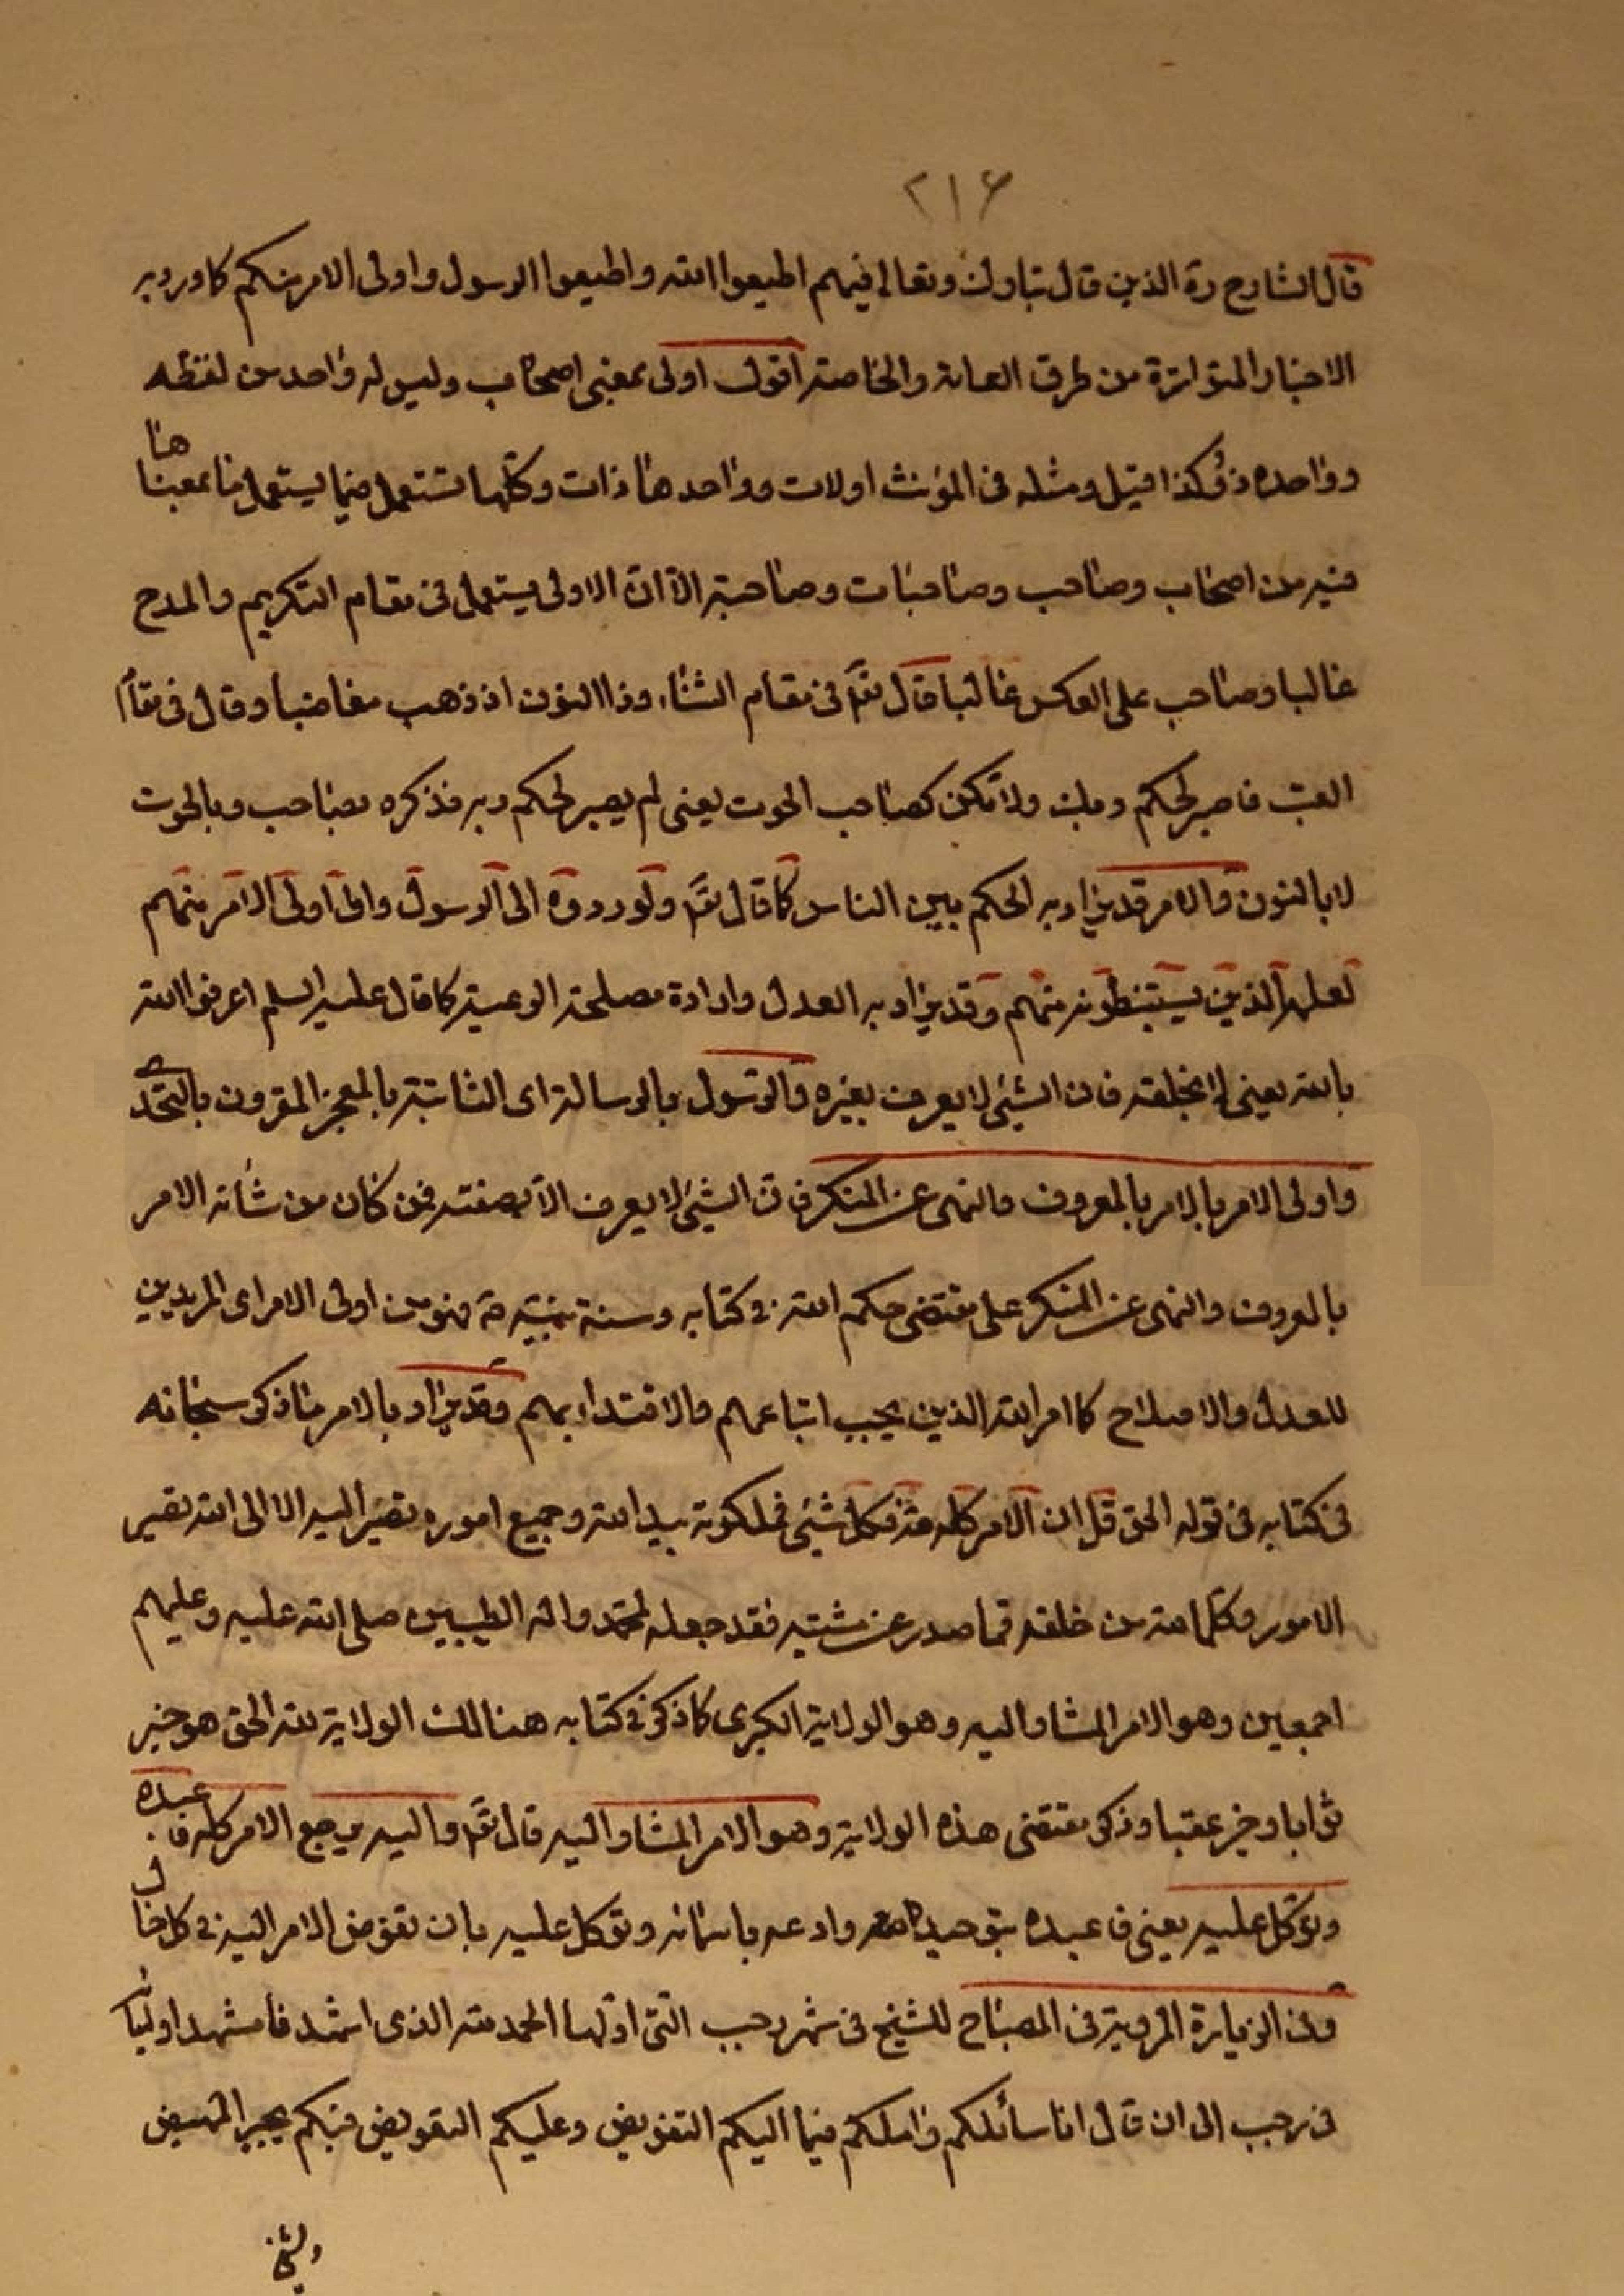 ٢١۶
قال الشارح ره الذين قال تبارك وتعالى فيهم اطيعوا الله واطيعوا الرسول واولى الامر منكم كما ورد به
الاخبار المتواترة من طرق العامة والخاصة اقول اولى بمعنى اصحاب وليس له واحد من لفظه
وواحده ذو كذا قيل ومثله فى المؤنث اولات وواحدها ذات وكلها تستعمل فيما يستعمل ما بمعناها
فيه من اصحاب وصاحب وصاحبات وصاحبة الّا انّ الاولى يستعمل فى مقام التكريم والمدح
غالبا وصاحب على العكس غالبا قال تع فى مقام الثناء وذا النون اذ ذهب مغاضبا وقال فى مقام
العتب فاصبر لحكم ربك ولا تكن كصاحب الحوت يعنى لم يصبر لحكم ربه فذكره بصاحب وبالحوت
لا بالنون والامر قد يراد به الحكم بين الناس كما قال تع ولو ردوه الى الرسول والى اولى الامر منهم
لعلمه الذين يستنبطونه منهم وقد يراد به العدل وارادة مصلحة الرعية كما قال عليه السلم اعرفوا الله
بالله يعنى لا بخلقه فان الشئ لا يعرف بغيره والرسول بالرسالة اى الثابتة بالمعجز المقرون بالتحدى
واولى الامر بالامر بالمعروف والنهى عن المنكر فان الشئ لا يعرف الّا بصفته فمن كان من شأنه الامر
بالمعروف والنهى عن المنكر على مقتضى حكم الله فى كتابه وسنة نبيه ص فهو من اولى الامر اى المريدين
للعدل والاصلاح كما امر الله الذين يجب اتباعهم والاقتداء بهم وقد يراد بالامر ما ذكر سبحانه
فى كتابه فى قوله الحق قل ان الامر كله لله فكل شئ فملكوته بيد الله وجميع اموره تصير اليه الا الى الله تصير
الامور وكلما لله من خلقه فما صدر عن مشيته فقد جعله لمحمد واله الطيبين صلى الله عليه وعليهم
اجمعين وهو الامر المشار اليه وهو الولاية الكبرى كما ذكر فى كتابه هنالك الولاية لله الحق هو خير
ثوابا وخير عقبا وذكر مقتضى هذه الولاية وهو الامر المشار اليه قال تع واليه يرجع الامر كله فاعبده
وتوكل عليه يعنى فاعبده بتوحيده وادعه باسمائه وتوكل عليه بان تفوض الامر اليه فى كل حال
وفى الزيارة المروية فى المصباح للشيخ فى شهر رجب التى اولها الحمد لله الذى اشهدنا مشهد اوليائه
فى رجب الى ان قال انا سائلكم واملكم فيما اليكم التفويض وعليكم التعويض فبكم يجبر المهيض